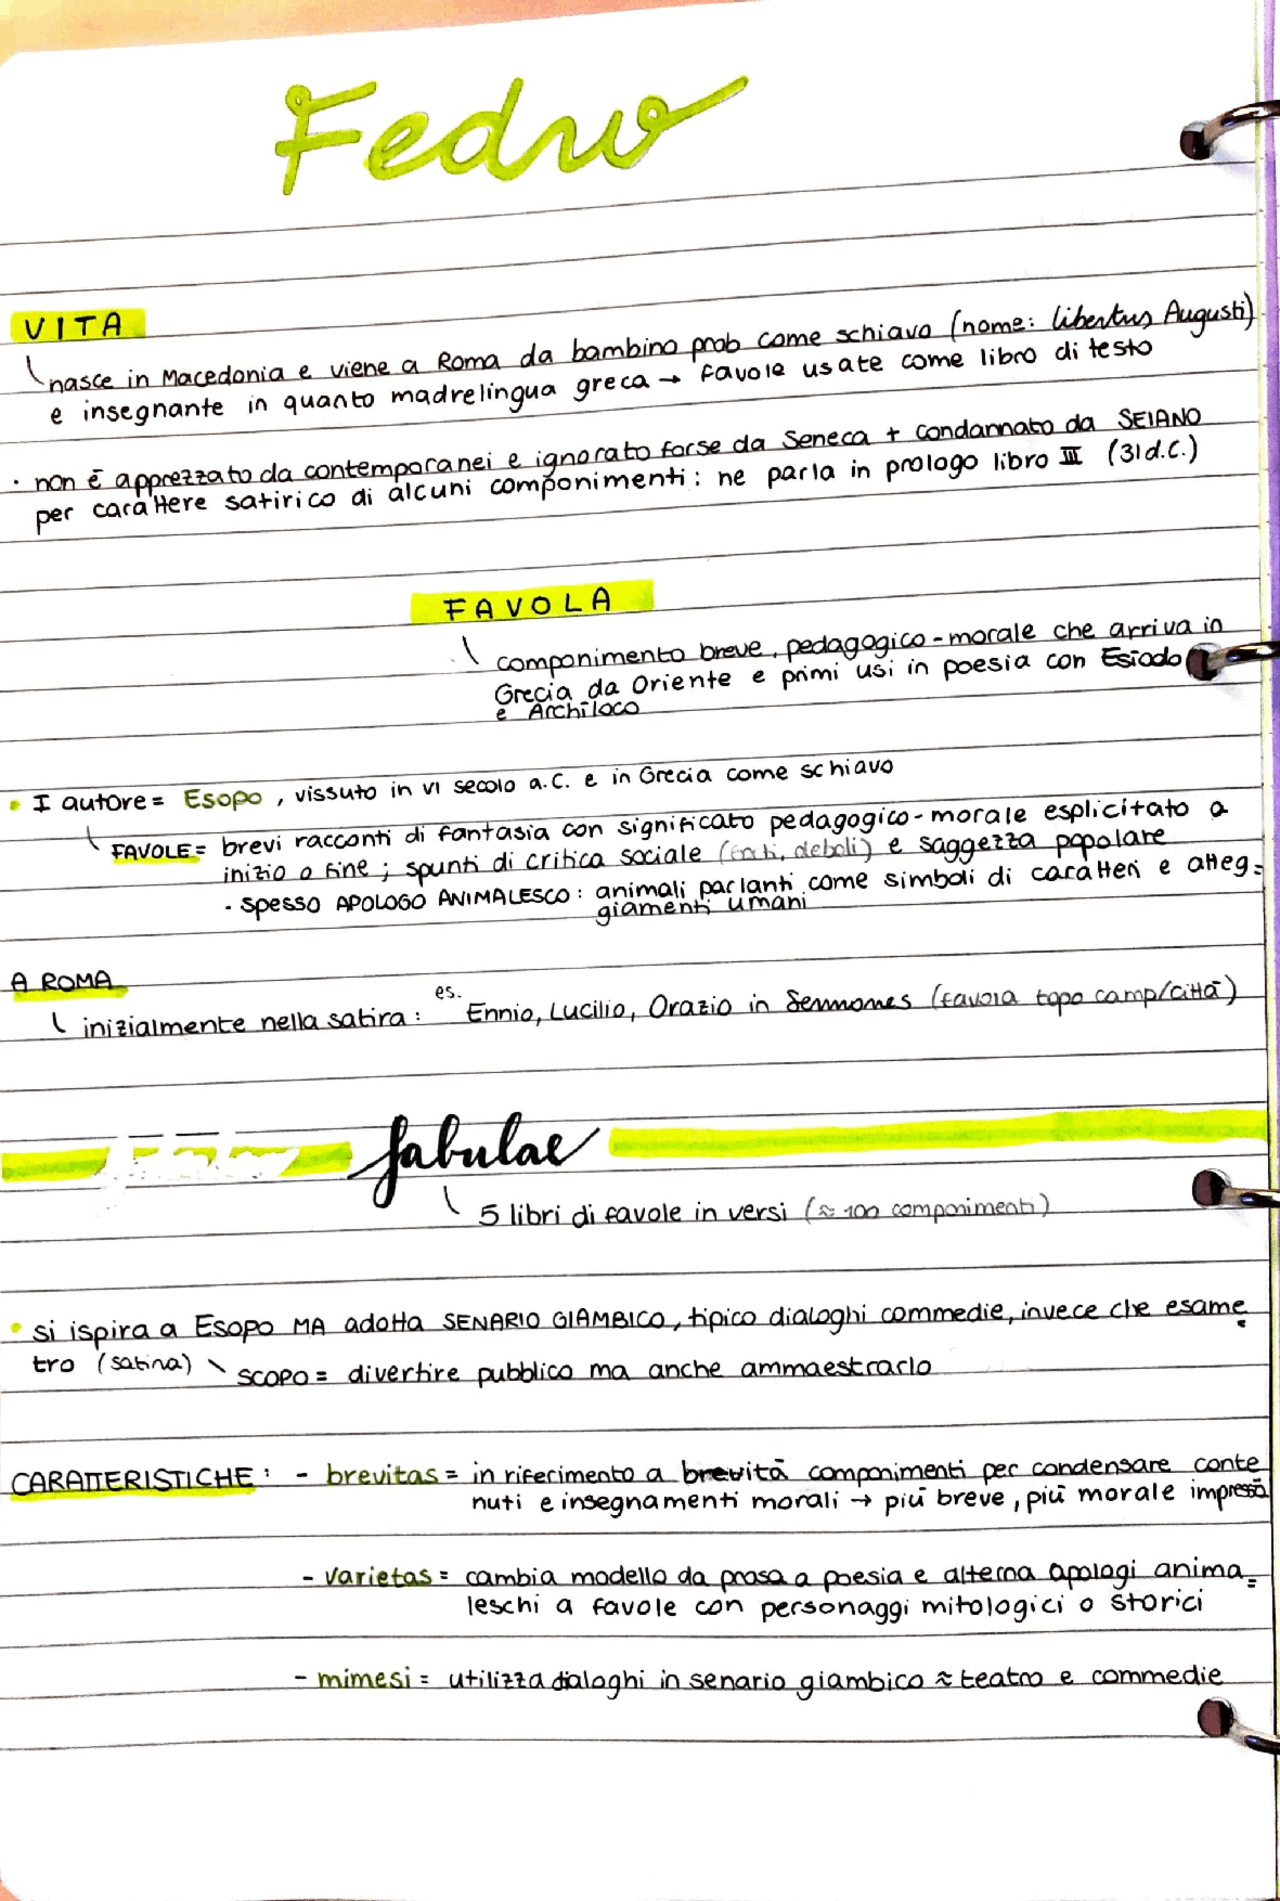 Fedro
VITA
nasce in Macedonia e viene a Roma da bambino prob come schiavo (nome: libertus Augusti)
e insegnante in quanto madrelingua greca → favole usate come libro di testo
· non è apprezzato da contemporanei e ignorato forse da Seneca + condannato da SEIANO
per carattere satirico di alcuni componimenti: ne parla in prologo libro III (31 d.C.)
FAVOLA
componimento breve, pedagogico-morale che arriva in
Grecia da Oriente e primi usi in poesia con Esiodo
e Archiloco
• I autore = Esopo, vissuto in VI secolo a.C. e in Grecia come schiavo
FAVOLE = brevi racconti di fantasia con significato pedagogico-morale esplicitato a
inizio o fine; spunti di critica sociale (forti, deboli) e saggezza popolare
· spesso APOLOGO ANIMALESCO: animali parlanti come simboli di caratteri e atteg=
giamenti umani
A ROMA
inizialmente nella satira: es. Ennio, Lucilio, Orazio in Sermones (favola topo camp/città)
fabulae
5 libri di favole in versi (≈ 100 componimenti)
• si ispira a Esopo MA adotta SENARIO GIAMBICO, tipico dialoghi commedie, invece che esame=
tro (satira) \ SCOPO = divertire pubblico ma anche ammaestrarlo
CARATTERISTICHE: - brevitas = in riferimento a brevità componimenti per condensare conte
nuti e insegnamenti morali → più breve, più morale impressa
- varietas = cambia modello da prosa a poesia e alterna apologi anima=
leschi a favole con personaggi mitologici o storici
- mimesi = utilizza dialoghi in senario giambico ≈ teatro e commedie